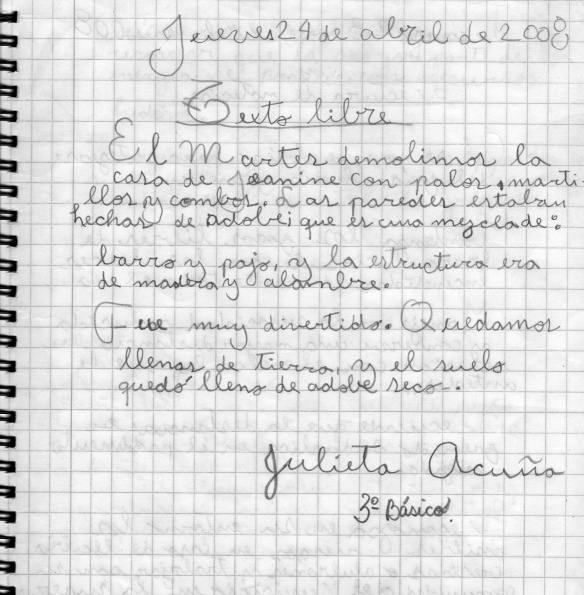 Jueves 24 de abril de 2008
Texto libre
El Martes demolimos la
casa de Jeanine con palos, marti-
llos y combos. Las paredes estaban
hechas de adobe i que es una mezcla de:
barro y paja, y la estructura era
de madera y alambre.
Fue muy divertido. Quedamos
llenas de tierra, y el suelo
quedó lleno de adobe seco.
Julieta Acuña
3º Básico.